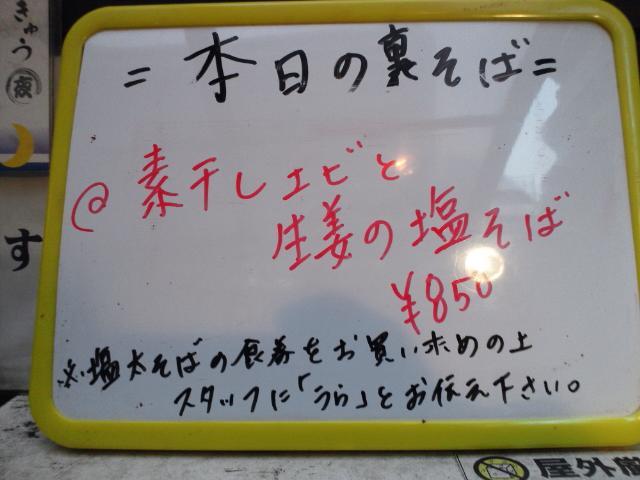 きゅう
夜
す
=本日の裏そば=
@素干しエビと
生姜の塩そば
¥850
※塩太そばの食券をお買い求めの上
スタッフに「うら」とお伝え下さい。
屋外